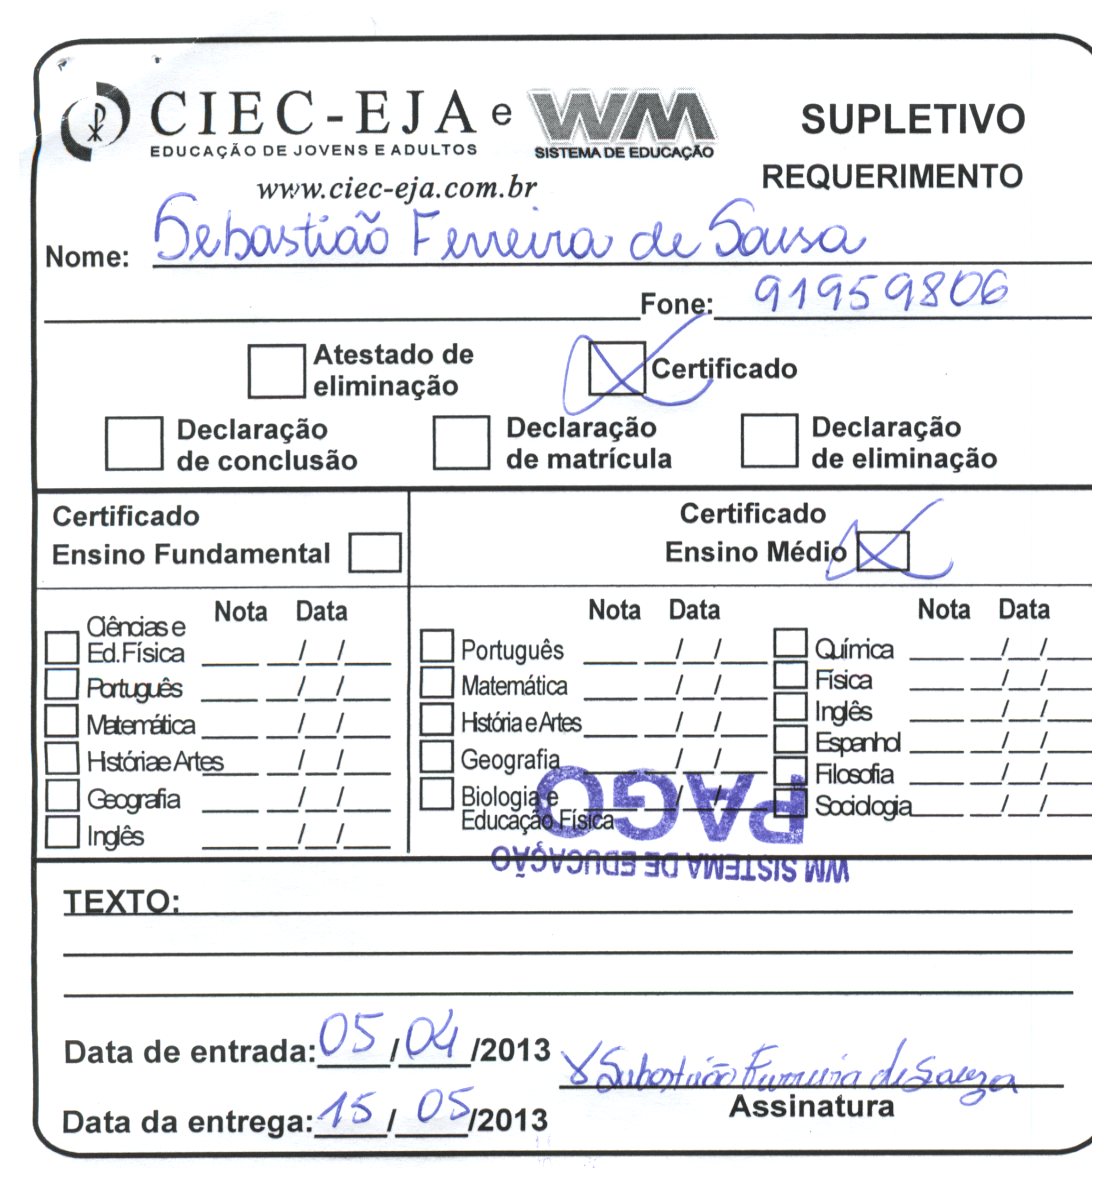 CIEC-EJA e WM
EDUCAÇÃO DE JOVENS E ADULTOS SISTEMA DE EDUCAÇÃO
www.ciec-eja.com.br
SUPLETIVO
REQUERIMENTO
Nome: Sebastião Ferreira de Sousa
Fone: 91959806
Atestado de
eliminação
Certificado
Declaração
de conclusão
Declaração
de matrícula
Declaração
de eliminação
Certificado
Ensino Fundamental
Nota Data
Ciências e
Ed.Física ____ __/__/__
Português ____ __/__/__
Matemática ____ __/__/__
História e Artes ____ __/__/__
Geografia ____ __/__/__
Inglês ____ __/__/__
Certificado
Ensino Médio
Nota Data
Português ____ __/__/__
Matemática ____ __/__/__
História e Artes ____ __/__/__
Geografia ____ __/__/__
Biologia e
Educação Física ____ __/__/__
Nota Data
Química ____ __/__/__
Física ____ __/__/__
Inglês ____ __/__/__
Espanhol ____ __/__/__
Filosofia ____ __/__/__
Sociologia ____ __/__/__
PAGO
WM SISTEMA DE EDUCAÇÃO
TEXTO:
Data de entrada: 05/04/2013
Sebastião Ferreira de Souza
Assinatura
Data da entrega: 15/05/2013